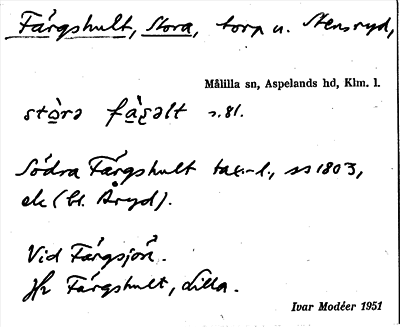 Färgshult, Stora, torp u. Stensryd,
Målilla sn, Aspelands hd, Klm. l.
stòrə fàrgəlt s. 81.
Södra Färgshult tax.-l., ss 1803,
ek (bl. Åryd).
Vid Färgsjön.
Jfr Färgshult, Lilla.
Ivar Modéer 1951